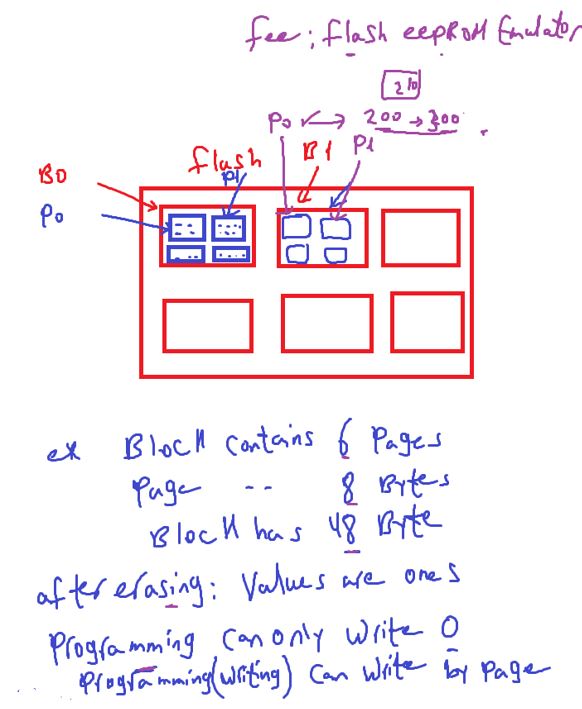 fee: flash eepROM Emulator
210
P0 200 → 300
P1
flash B1
B0 P1
P0
ex Block contains 6 Pages
Page -- 8 Bytes
Block has 48 Byte
after erasing: Values are ones
Programming can only write 0
Programming(writing) can write by page